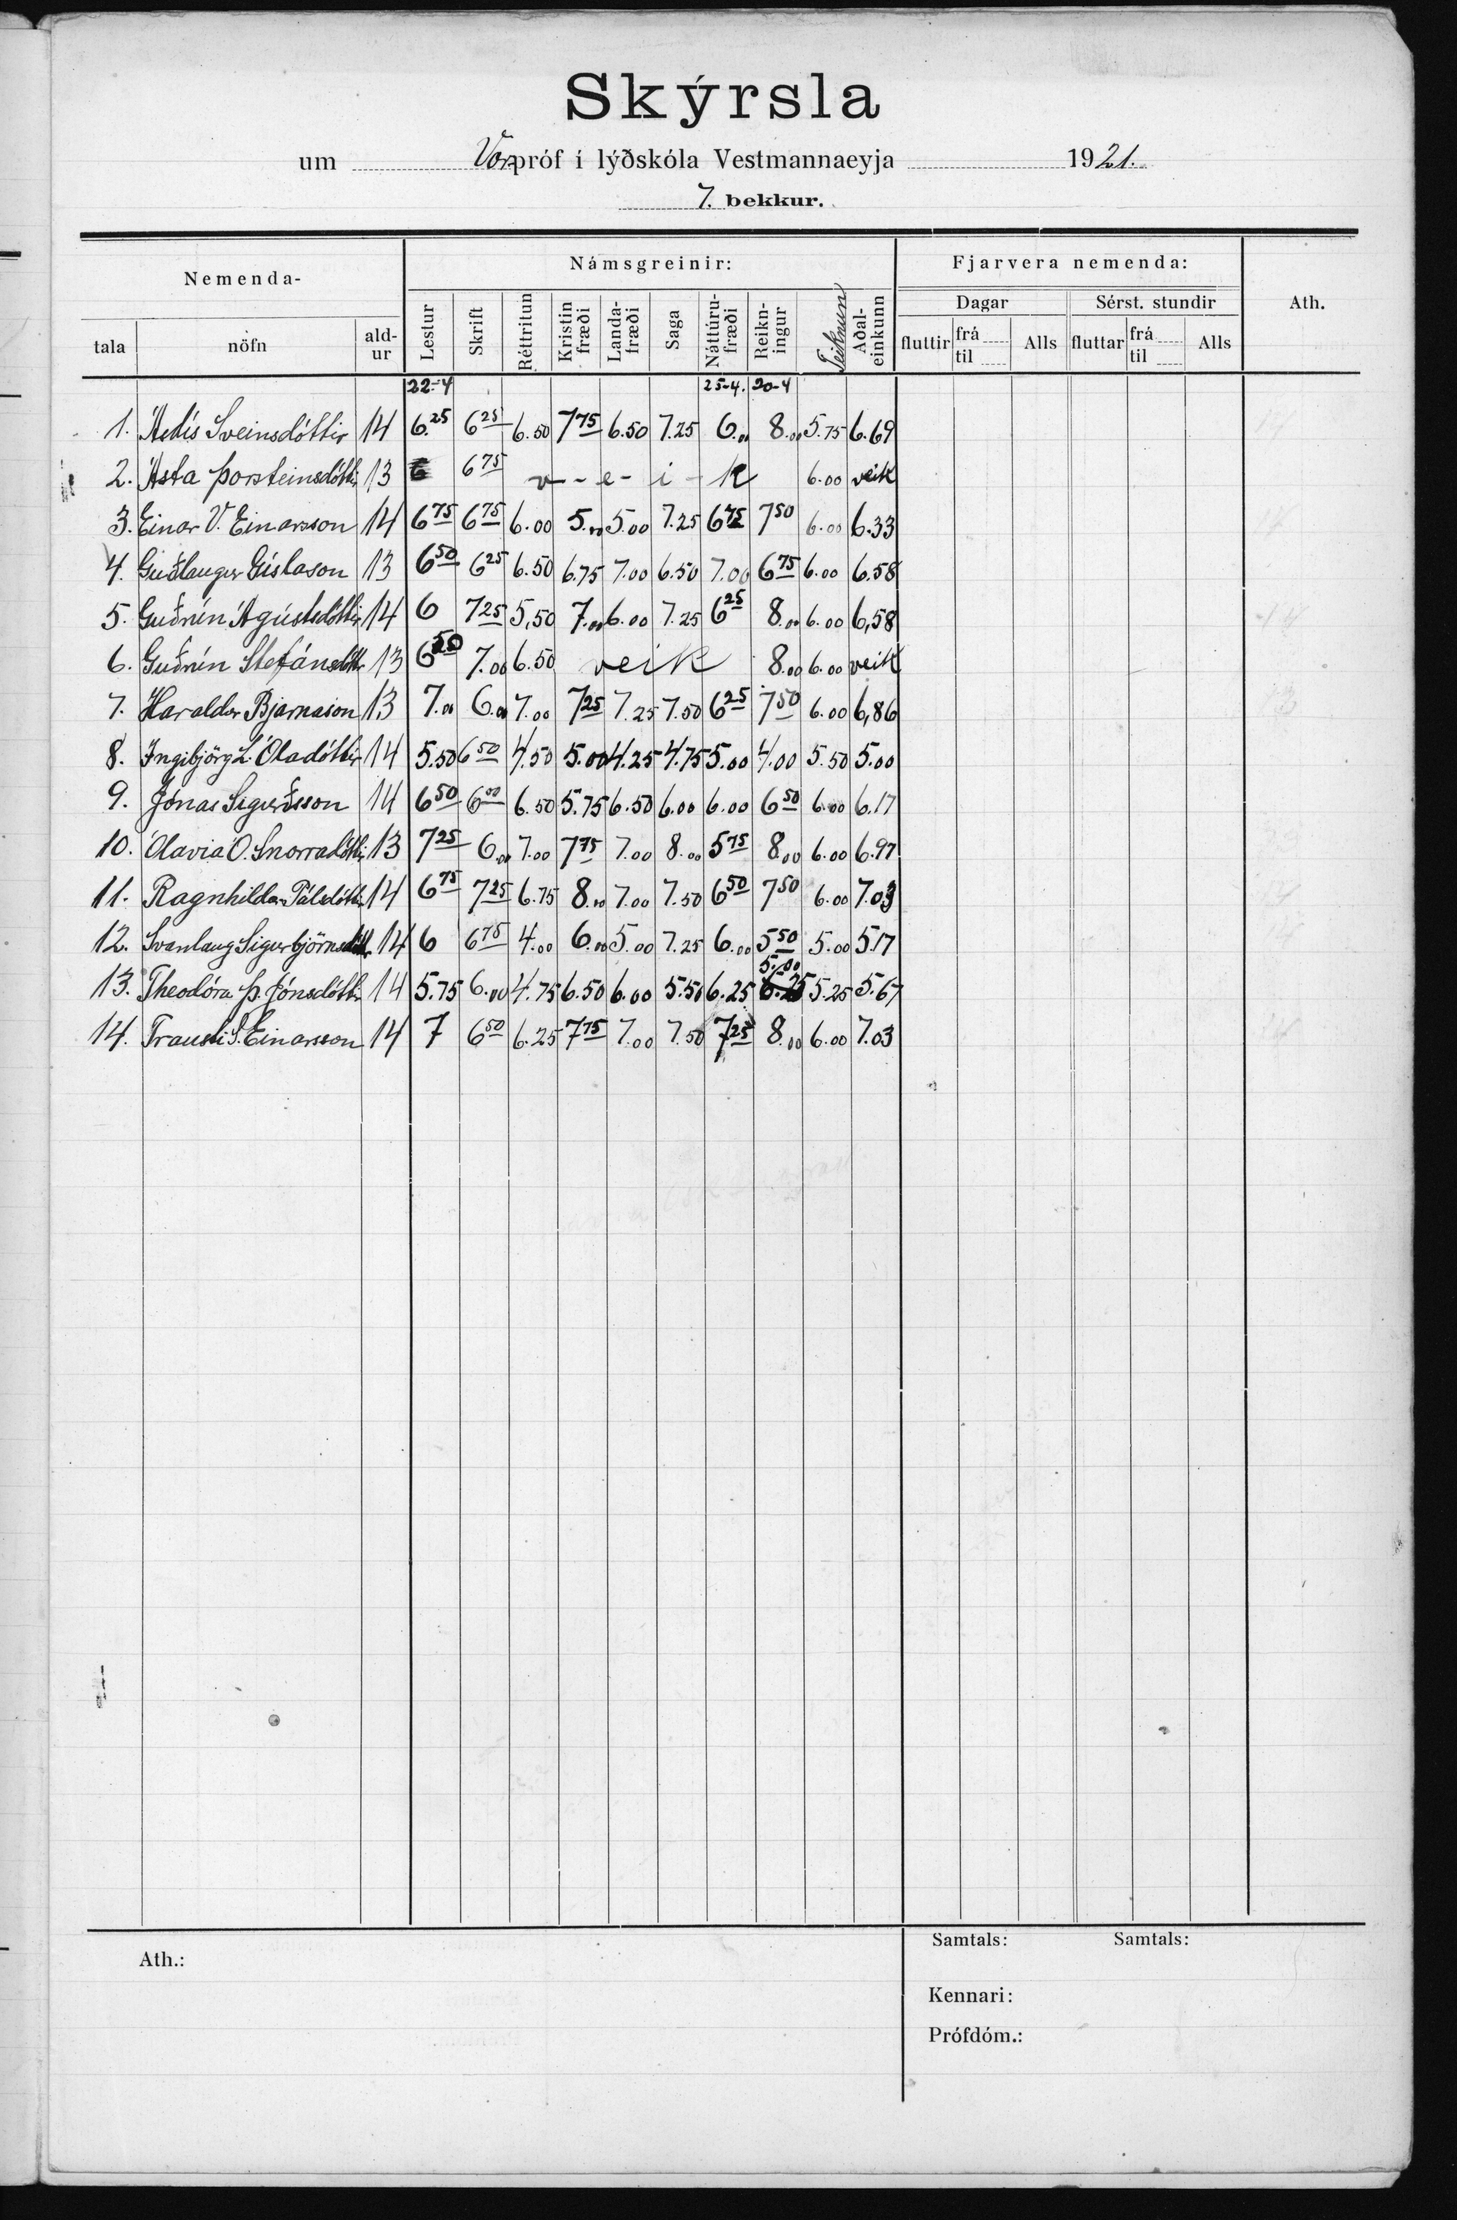 Skýrsla
um Vorpróf í lýðskóla Vestmannaeyja 1921.
7. bekkur.
Nemenda- Námsgreinir: Fjarvera nemenda: Ath.
tala nöfn ald-ur Lestur Skrift Réttritun Kristin fræði Landa-fræði Saga Náttúru-fræði Reikn-ingur Teiknun Aðal-einkunn Dagar Sérst. stundir
fluttir frá til Alls fluttar frá til Alls
22-4 25-4. 20-4
1. Ásdís Sveinsdóttir 14 6.25 6 25 6.50 7 75 6.50 7.25 6.00 8.00 5.75 6.69
2. Ásta Þorsteinsdóttir 13 6 6 75 v - e - i - k 6.00 veik
3. Einar V. Einarsson 14 6 75 6 75 6.00 5.00 5.00 7.25 6 75 7 50 6.00 6.33
4. Guðlaugur Gíslason 13 6 50 6 25 6.50 6.75 7.00 6.50 7.00 6 75 6.00 6.58
5. Guðrún Ágústsdóttir 14 6 7 25 5,50 7.00 6.00 7.25 6 25 8.00 6.00 6,58
6. Guðrún Stefánsdótt. 13 6 50 7.00 6.50 veik 8.00 6.00 veik
7. Haraldur Bjarnason 13 7.00 6.00 7.00 7 25 7.25 7.50 6 25 7 50 6.00 6,86
8. Ingibjörg L. Óladóttir 14 5.50 6 50 4.50 5.00 4.25 4.75 5.00 4.00 5.50 5.00
9. Jónas Sigurðsson 14 6 50 6 00 6.50 5.75 6.50 6.00 6.00 6 50 6.00 6.17
10. Ólavia Ó. Snorradóttir 13 7 25 6.00 7.00 7 75 7.00 8.00 5 75 8.00 6.00 6.97
11. Ragnhildur Pálsdóttir 14 6 75 7 25 6.75 8.00 7.00 7.50 6 50 7 50 6.00 7.03
12. Svanlaug Sigurbjörnsdótt. 14 6 6 75 4.00 6.00 5.00 7.25 6.00 5 50 5.00 5.17
13. Theodóra Þ. Jónsdótt. 14 5.75 6.00 4.75 6.50 6.00 5.50 6.25 5.00 5.25 5.67
14. Trausti S. Einarsson 14 7 6 50 6.25 7 75 7.00 7.50 7 25 8.00 6.00 7.03
Ath.:
Samtals: Samtals:
Kennari:
Prófdóm.: